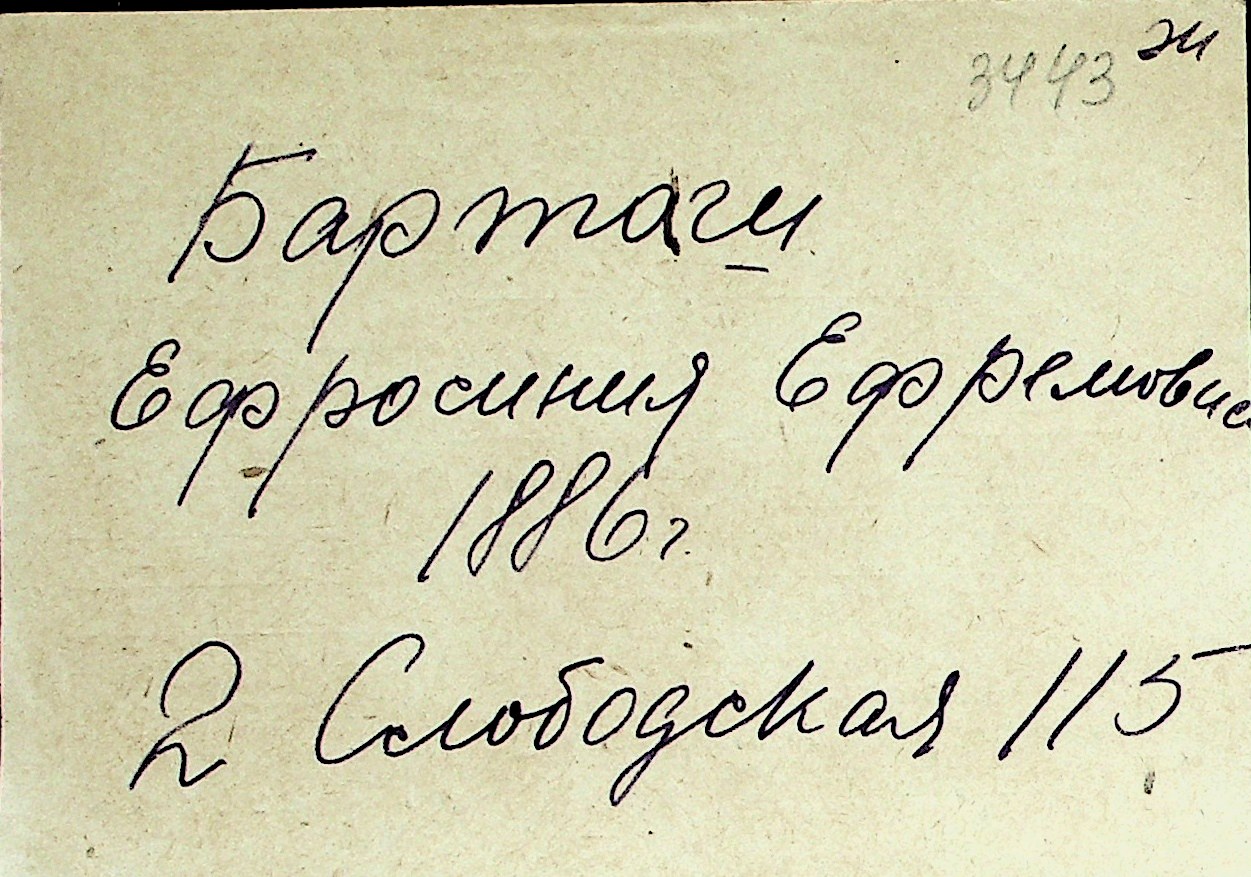 3443 ж
Бартаги
Ефросиния Ефремовна
1886 г.
2 Слободская 115